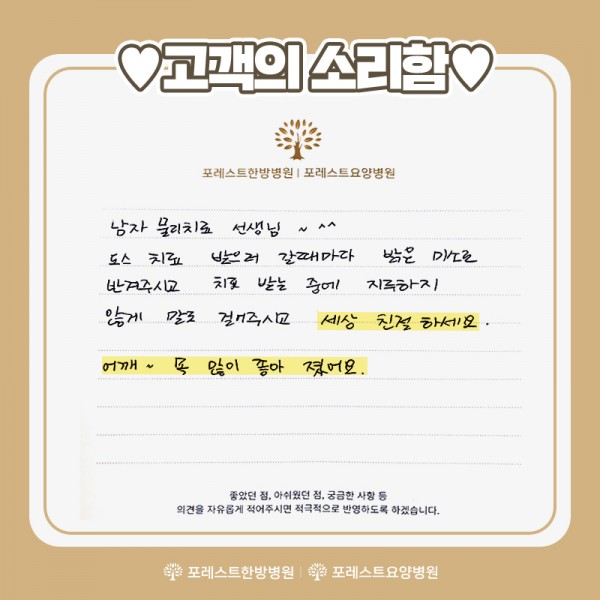 ♥고객의 소리함♥
포레스트한방병원 | 포레스트요양병원
남자 물리치료 선생님 ~ ^^
도스 치료 받으러 갈때마다 밝은 미소로
반겨주시고 치료 받는 중에 지루하지
않게 말도 걸어주시고 세상 친절 하세요.
어깨~ 목 많이 좋아 졌어요.
좋았던 점, 아쉬웠던 점, 궁금한 사항 등
의견을 자유롭게 적어주시면 적극적으로 반영하도록 하겠습니다.
포레스트한방병원 | 포레스트요양병원